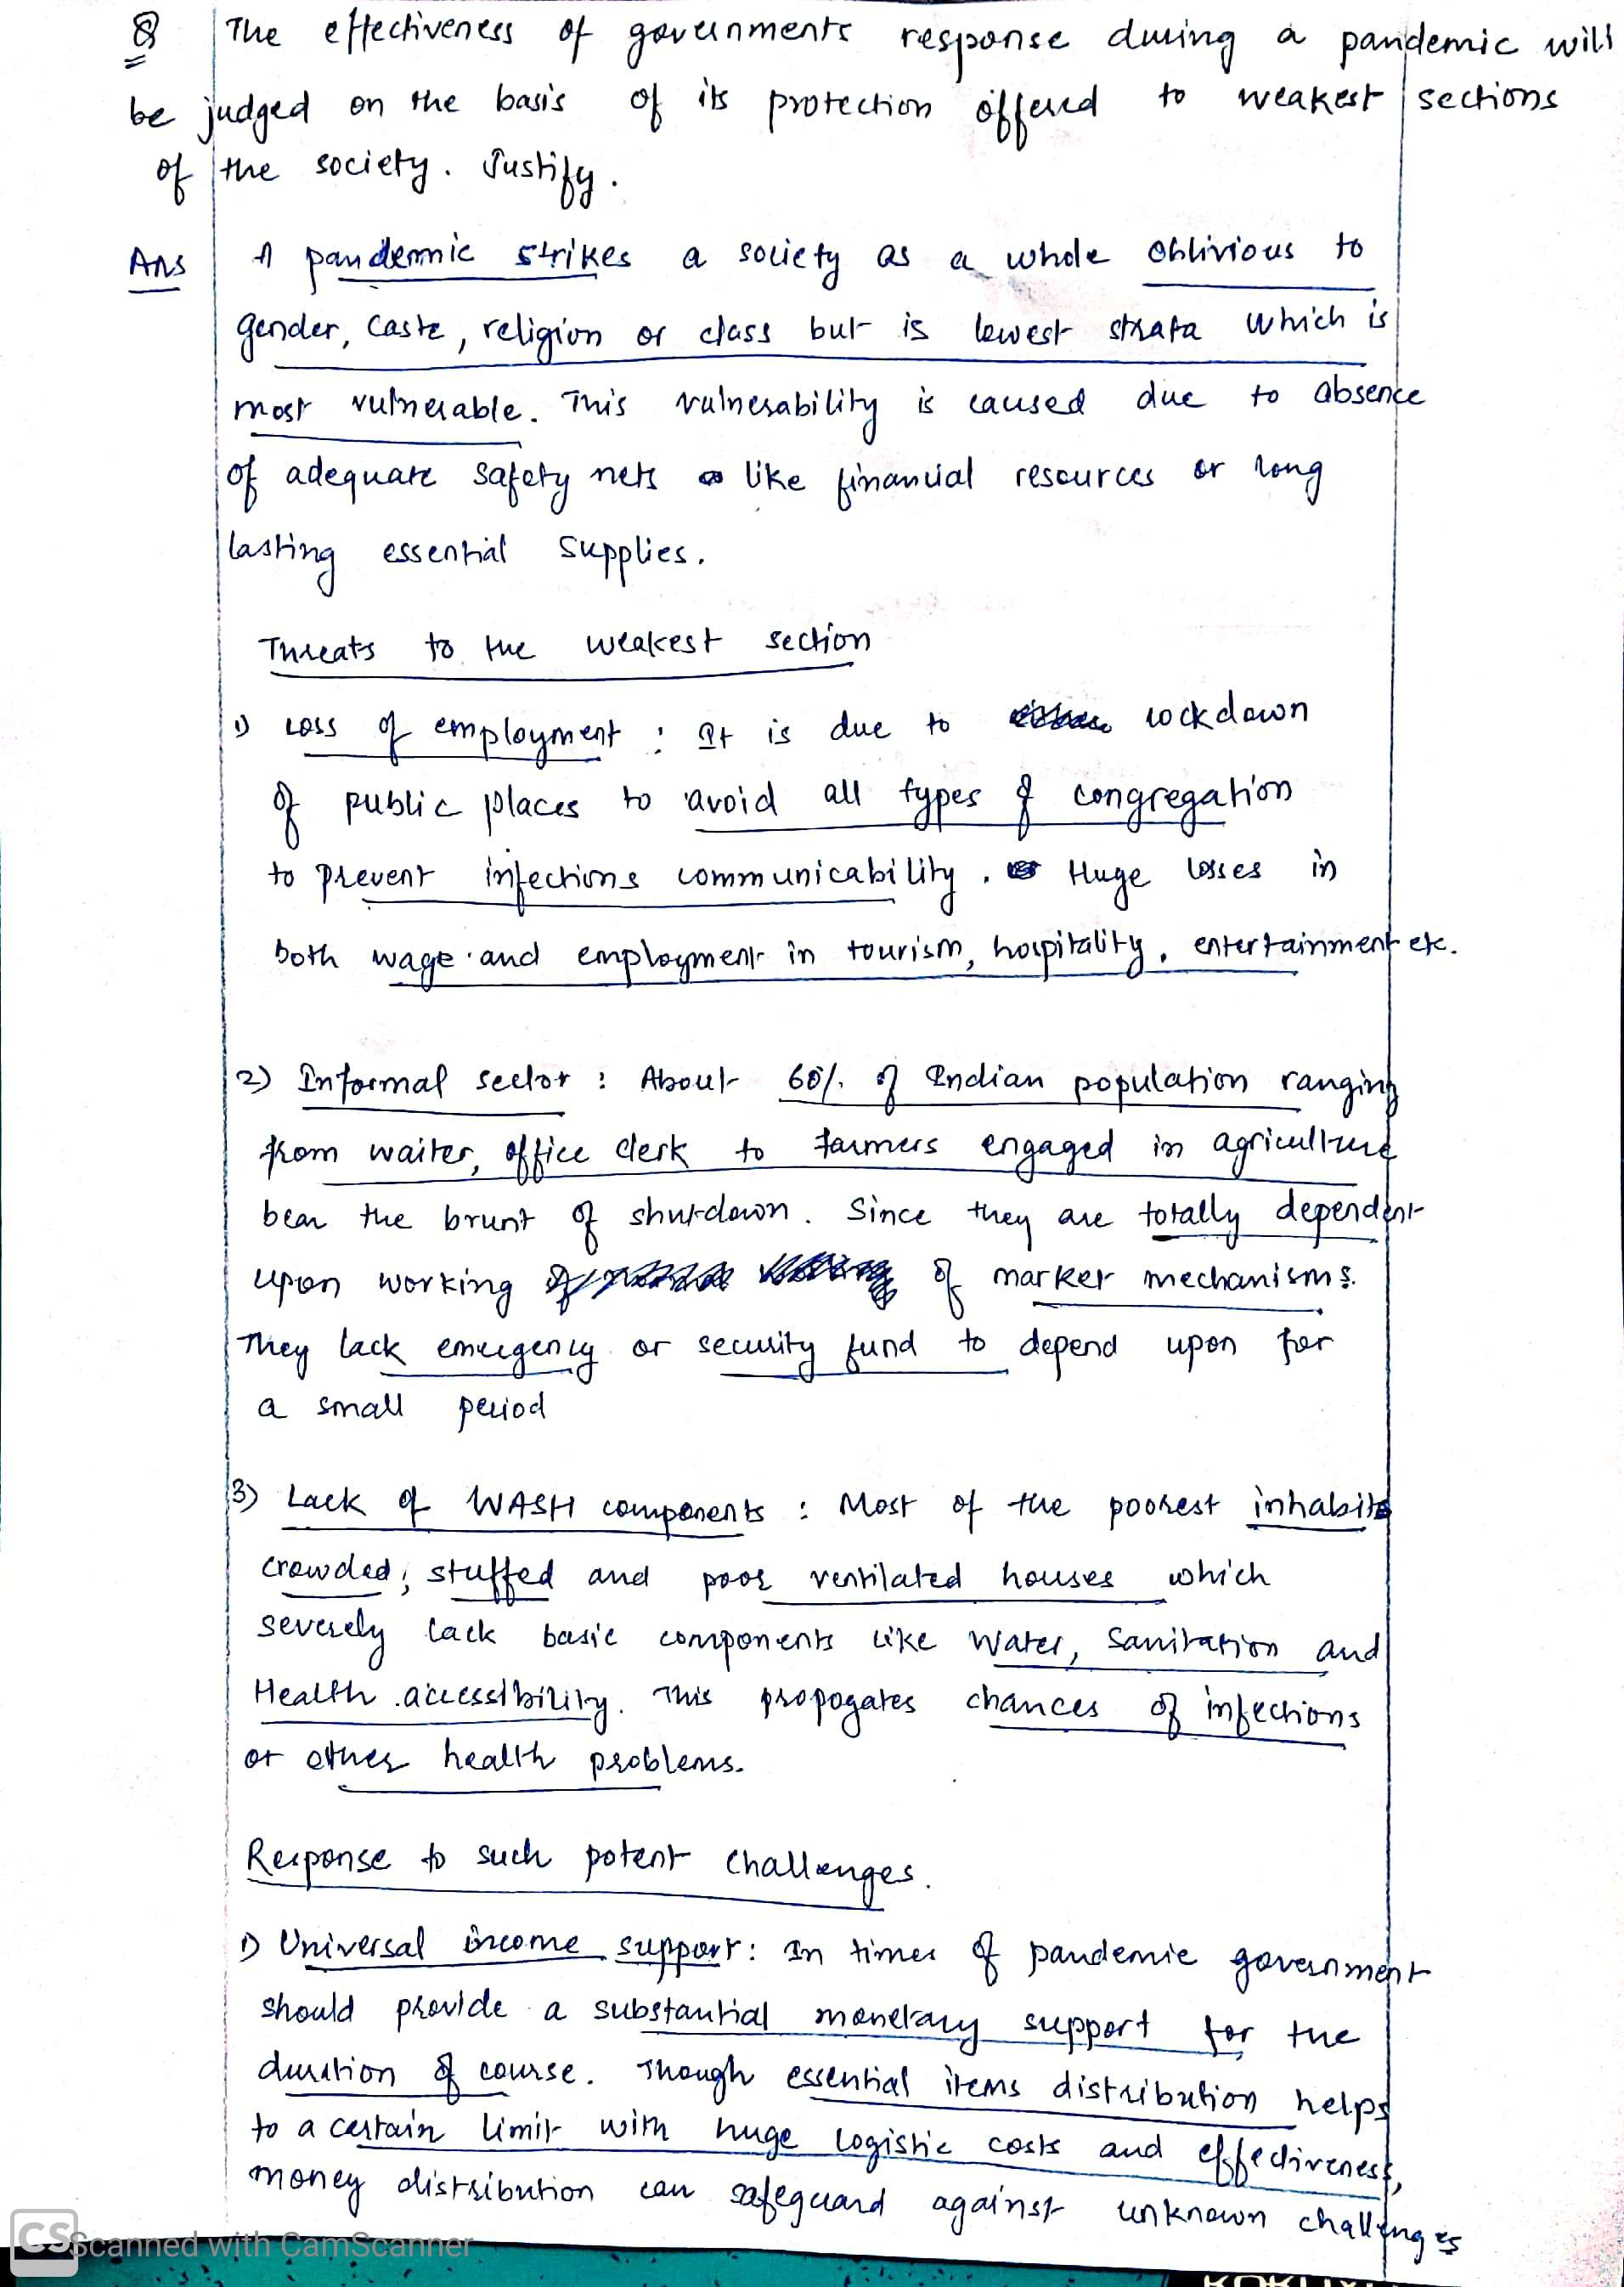 Q The effectiveness of governments response during a pandemic will
be judged on the basis of its protection offered to weakest sections
of the society. Justify.
Ans A pandemic strikes a society as a whole oblivious to
gender, caste, religion or class but is lowest strata which is
most vulnerable. This vulnerability is caused due to absence
of adequate safety nets like financial resources or long
lasting essential supplies.
Threats to the weakest section
1) Loss of employment : It is due to lockdown
of public places to avoid all types of congregation
to prevent infections communicability. Huge losses in
both wage and employment in tourism, hospitality, entertainment etc.
2) Informal sector : About 60% of Indian population ranging
from waiter, office clerk to farmers engaged in agriculture
bear the brunt of shutdown. Since they are totally dependent
upon working of market mechanisms.
They lack emergency or security fund to depend upon for
a small period
3) Lack of WASH components : Most of the poorest inhabits
crowded, stuffed and poor ventilated houses which
severely lack basic components like Water, Sanitation and
Health accessibility. This propogates chances of infections
or other health problems.
Response to such potent challenges.
1) Universal income support: In times of pandemic government
should provide a substantial monetary support for the
duration of course. Though essential items distribution helps
to a certain limit with huge logistic costs and effectiveness,
money distribution can safeguard against unknown challenges
CS Scanned with CamScanner